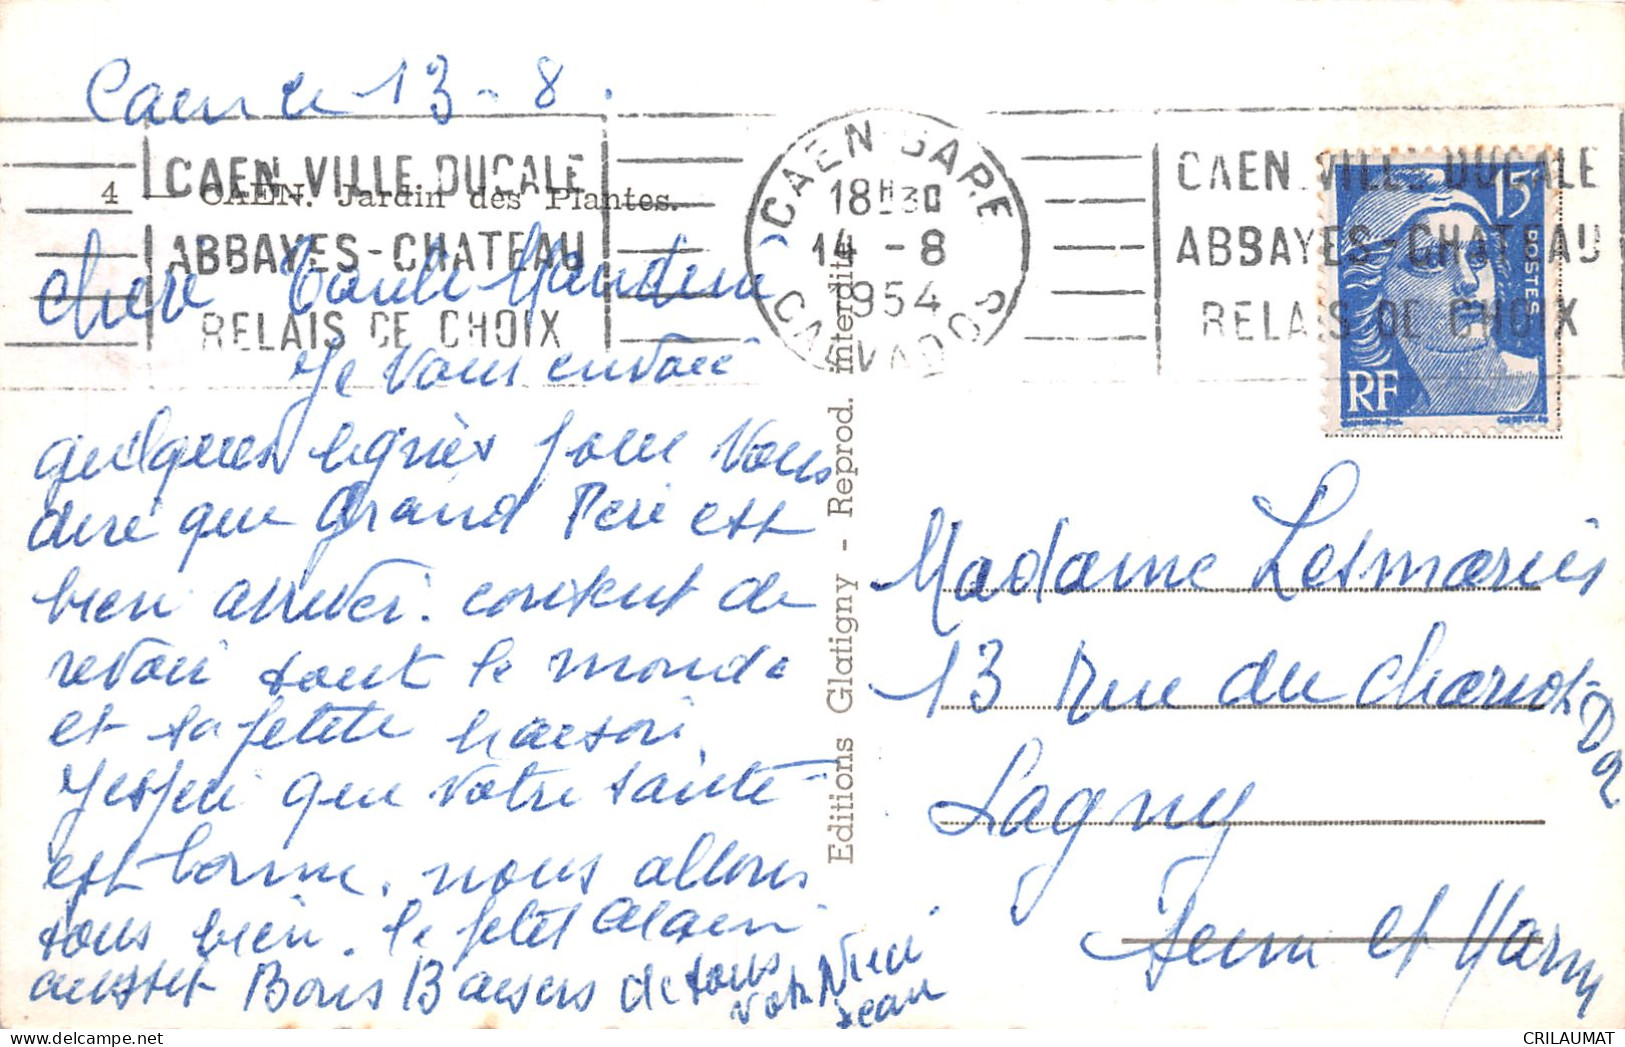 Caen le 13 - 8.
CAEN VILLE DUCALE
ABBAYES-CHATEAU
RELAIS DE CHOIX
4 — CAEN. Jardin des Plantes.
CAEN GARE
18H30
14 -8
1954
CALVADOS
CAEN VILLE DUCALE
ABBAYES-CHATEAU
RELAIS DE CHOIX
15F
POSTES
RF
chere Tante
Je vous envoie
quelques lignes pour vous
dire que Grand Pere est
bien arriver. content de
revoir tout le monde
et sa petite maison.
J'espere que votre santé
est bonne. nous allons
tous bien. le petit Alain
aussi Bons Baisers de tous
votre Nieu
Jean
Editions Glatigny - Reprod. interdite
Madame Lesmaries
13 Rue du chariot
D'or
Lagny
Seine et Marne
CRILAUMAT